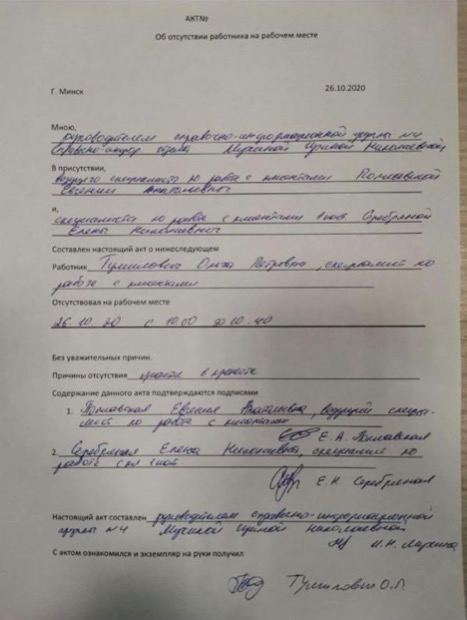 АКТ№
Об отсутствии работника на рабочем месте
Г. Минск 26.10.2020
Мною,
руководителем справочно-информационной группы №4
отдела Мухиной Ириной Николаевной
В присутствии,
ведущего специалиста по работе с клиентами Поплавской
Евгении Анатольевны
и,
специалиста по работе с клиентами 1 кат. Серебряной
Елены Николаевны
Составлен настоящий акт о нижеследующем
Работник Тумилович Ольга Петровна, специалист по
работе с клиентами
Отсутствовал на рабочем месте
26.10.20 с 10.00 до 10.40
Без уважительных причин.
Причины отсутствия участие в
Содержание данного акта подтверждаются подписями
1. Поплавская Евгения Анатольевна, ведущий специа-
лист по работе с клиентами
Е.А. Поплавская
2. Серебряная Елена Николаевна, специалист по
работе с кл 1 кат
Е.Н Серебряная
Настоящий акт составлен руководителем справочно-информационной
группы №4 Мухиной Ириной Николаевной
И.Н. Мухина
С актом ознакомился и экземпляр на руки получил
Тумилович О.П.